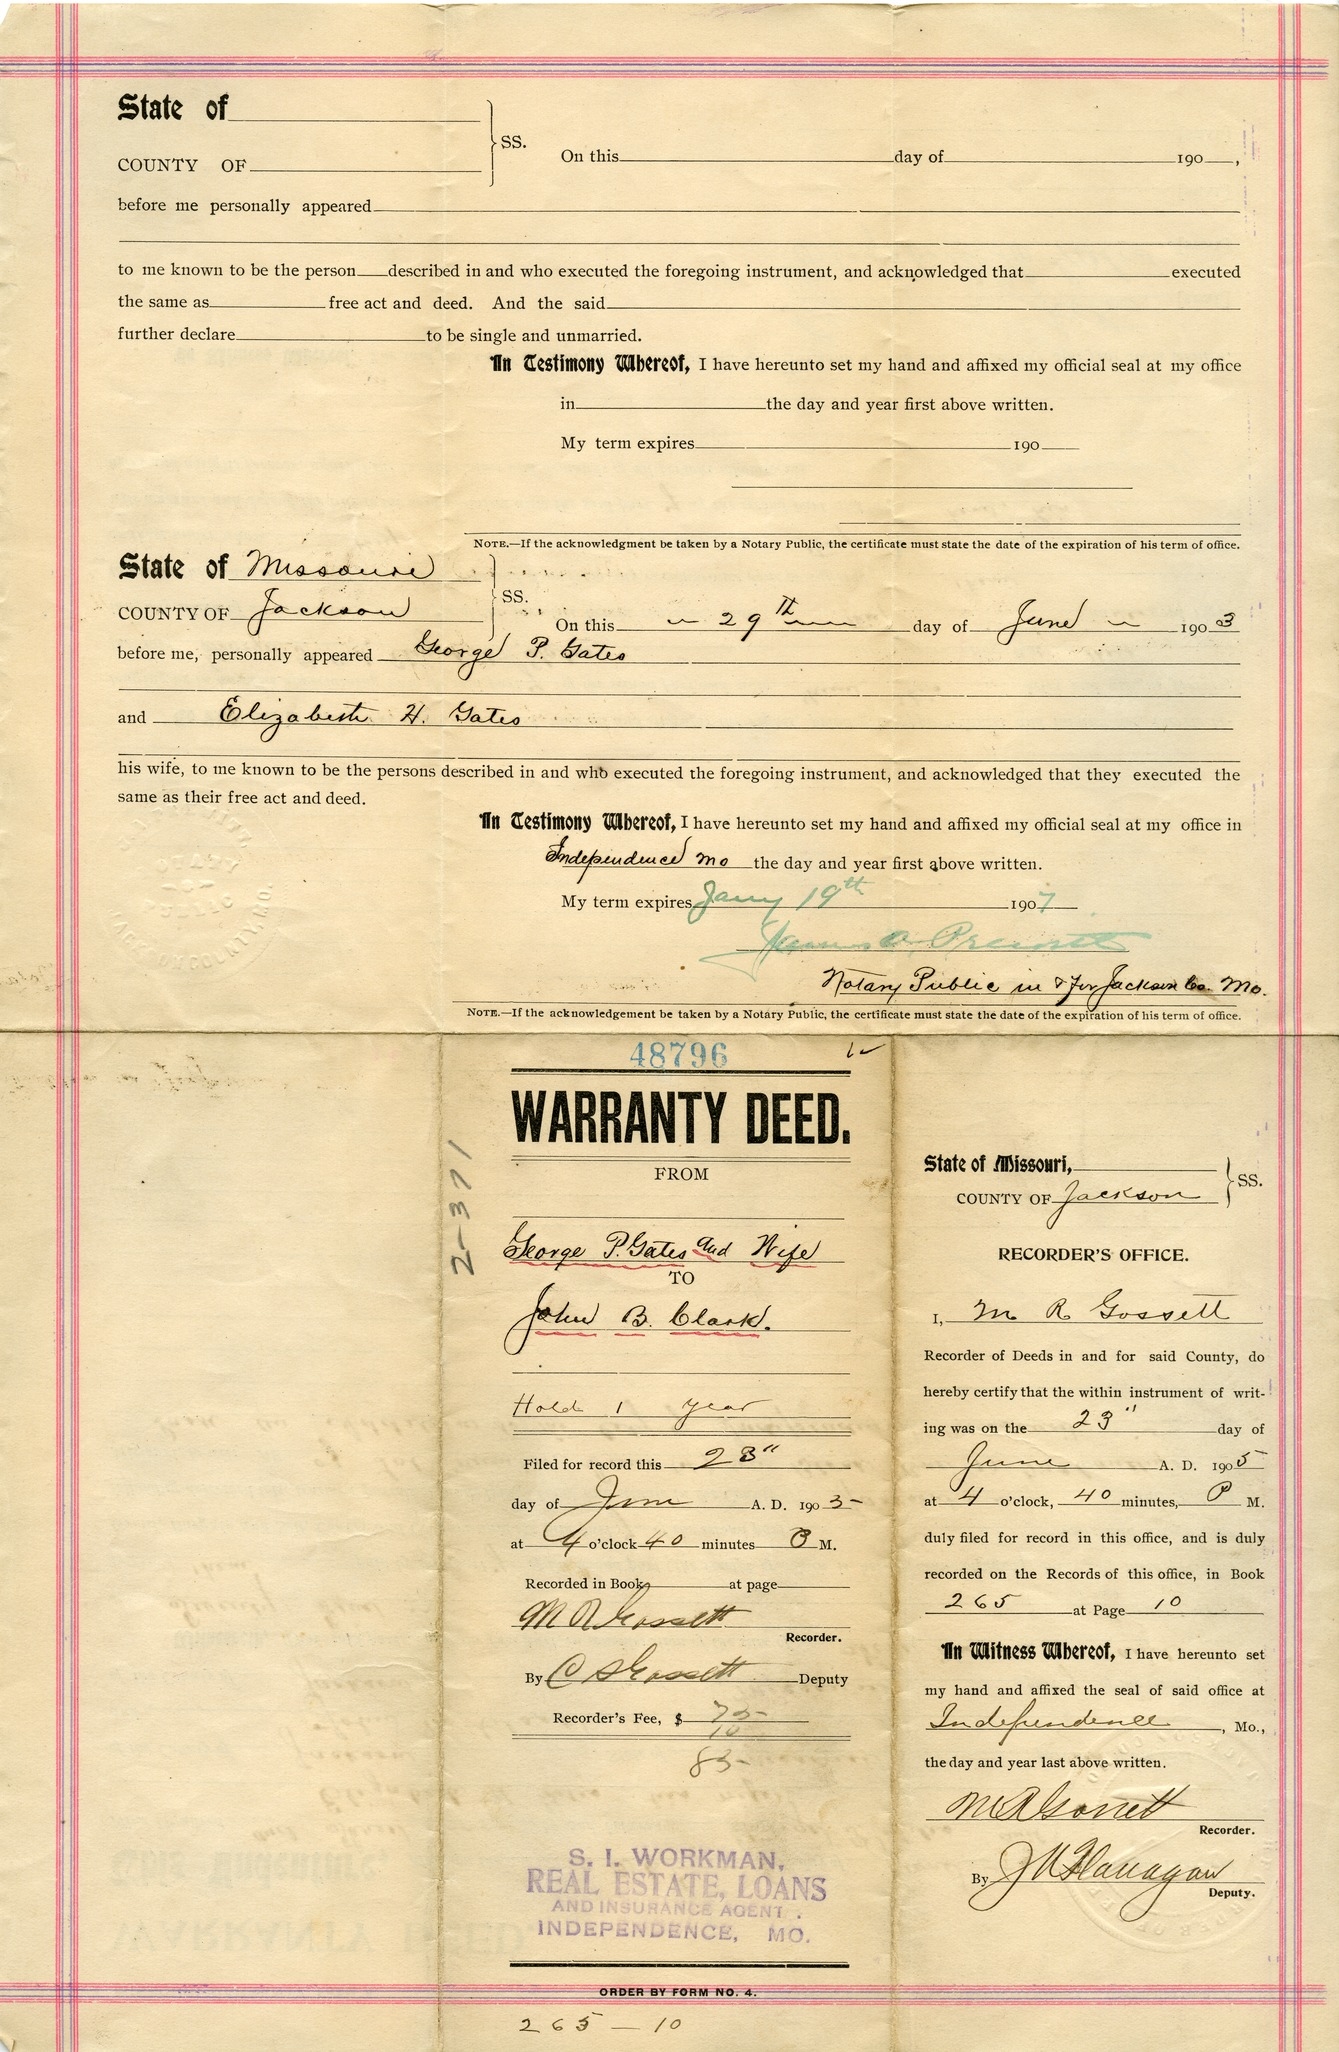 State of
COUNTY OF
SS.
On this day of 190 ,
before me personally appeared
to me known to be the person described in and who executed the foregoing instrument, and acknowledged that executed
the same as free act and deed. And the said
further declare to be single and unmarried.
In Testimony Whereof, I have hereunto set my hand and affixed my official seal at my office
in the day and year first above written.
My term expires 190
NOTE.—If the acknowledgment be taken by a Notary Public, the certificate must state the date of the expiration of his term of office.
State of Missouri
COUNTY OF Jackson
SS.
On this 29th day of June 1903
before me, personally appeared George P. Gates
and Elizabeth H. Gates
his wife, to me known to be the persons described in and who executed the foregoing instrument, and acknowledged that they executed the
same as their free act and deed.
In Testimony Whereof, I have hereunto set my hand and affixed my official seal at my office in
Independence Mo the day and year first above written.
My term expires Jany 19th 1907
James A. Prewitt
Notary Public in & for Jackson Co. Mo.
NOTE.—If the acknowledgement be taken by a Notary Public, the certificate must state the date of the expiration of his term of office.
JACKSON COUNTY, MO.
48796
WARRANTY DEED.
2-371
FROM
George P. Gates and Wife
TO
John B. Clark.
Hold 1 year
Filed for record this 23"
day of June A. D. 1905
at 4 o'clock 40 minutes P M.
Recorded in Book at page
M R Gossett
Recorder.
By C S Gossett Deputy
Recorder's Fee, $ 75
10
85
S. I. WORKMAN,
REAL ESTATE, LOANS
AND INSURANCE AGENT.
INDEPENDENCE, MO.
ORDER BY FORM NO. 4.
265 — 10
State of Missouri,
COUNTY OF Jackson
SS.
RECORDER'S OFFICE.
I, M R Gossett
Recorder of Deeds in and for said County, do
hereby certify that the within instrument of writ-
ing was on the 23" day of
June A. D. 1905
at 4 o'clock, 40 minutes, P M.
duly filed for record in this office, and is duly
recorded on the Records of this office, in Book
265 at Page 10
In Witness Whereof, I have hereunto set
my hand and affixed the seal of said office at
Independence, Mo.,
the day and year last above written.
M R Gossett
Recorder.
By J H Flanagan
Deputy.